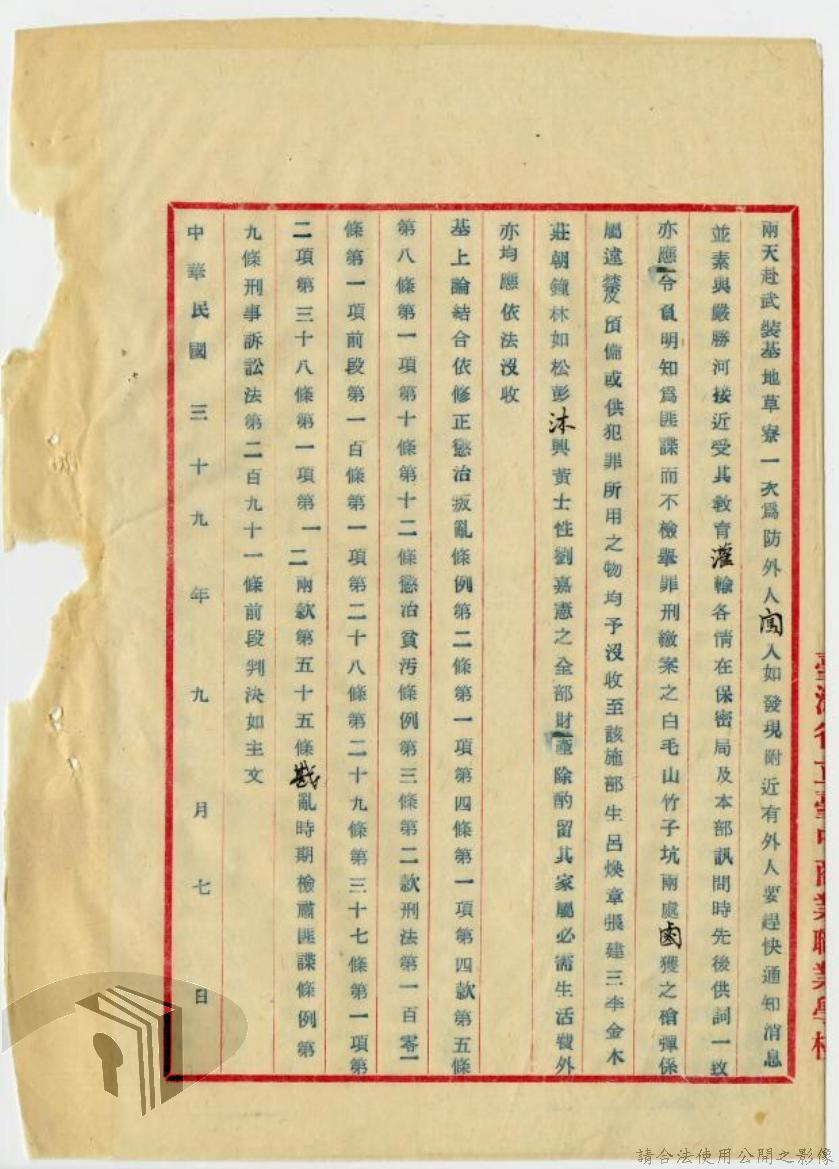 兩天赴武裝基地草寮一次爲防外人闖入如發現附近有外人要趕快通知消息
並素與嚴勝河接近受其教育灌輸各情在保密局及本部訊問時先後供詞一致
亦應令負明知爲匪諜而不檢舉罪刑繳案之白毛山竹子坑兩處鹵獲之槍彈係
屬違禁及預備或供犯罪所用之物均予沒收至該施部生呂煥章張建三李金木
莊朝鐘林如松彭沐興黃士性劉嘉憲之全部財產除酌留其家屬必需生活費外
亦均應依法沒收
基上論結合依修正懲治叛亂條例第二條第一項第四條第一項第四款第五條
第八條第一項第十條第十二條懲治貪污條例第三條第二款刑法第一百零一
條第一項前段第一百條第一項第二十八條第二十九條第三十七條第一項第
二項第三十八條第一項第一二兩款第五十五條戡亂時期檢肅匪諜條例第
九條刑事訴訟法第二百九十一條前段判決如主文
中華民國三十九年九月七日
臺灣省立臺中商業職業學校
請合法使用公開之影像